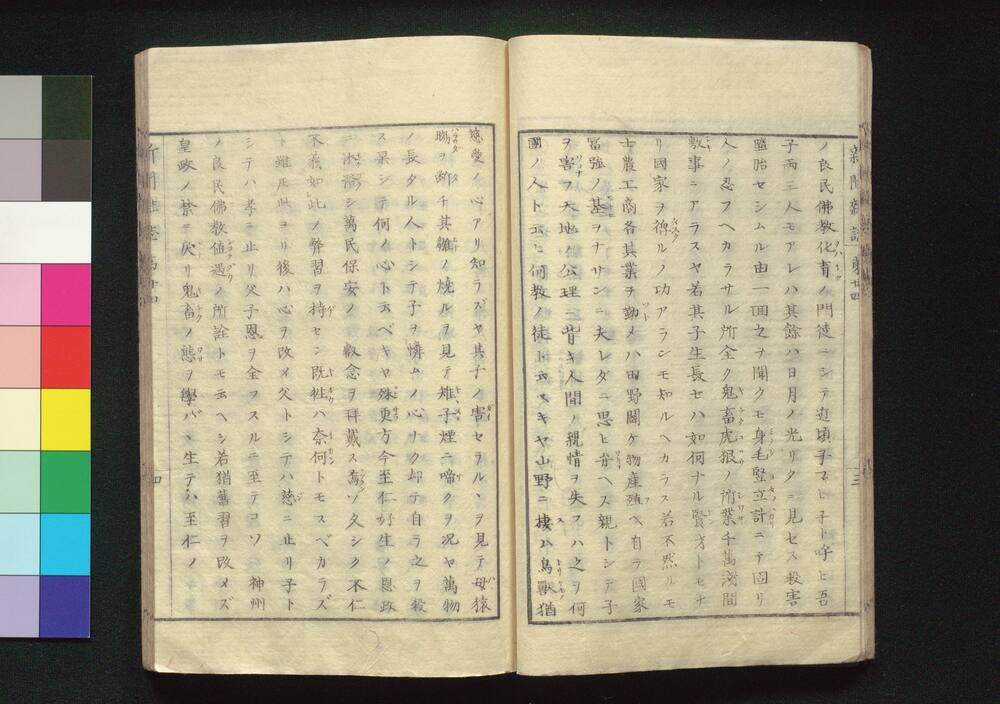 ノ良民佛教化育ノ門徒ニシテ近頃子マヒキト呼ヒ吾
子両三人モアレハ其餘ハ日月ノ光リタニ見セス殺害
堕胎セシムル由一回之ヲ聞クモ身毛竪立計ニテ固リ
人ノ忍フヘカラサル所全ク鬼畜虎狼ノ所業千萬淺間
敷事ニアラスヤ若其子生長セハ如何ナル賢才トモナ
リ國家ヲ裨ルノ功アランモ知ルヘカラス若不然ルモ
士農工商各其業ヲ勤メハ田野闢ケ物産殖ヘ自ラ國家
冨強ノ基ヲナサンニ夫レダニ思ヒ弁ヘス親トシテ子
ヲ害フ天地ノ公理ニ背キ人間ノ親情ヲ失フハ之ヲ何
國ノ人ト云ヒ何教ノ徒ト云スキヤ山野ニ棲ム鳥獣猶
慈愛ノ心アリ知ラズヤ其子ノ害セラルヽヲ見テ母猿
腸ヲ断チ其雛ノ焼ルヲ見テ雉子煙ニ啼クヲ況ヤ萬物
ノ長タル人トシテ子ヲ憐ムノ心ナク却テ自ラ之ヲ殺
ス果シテ何ノ心ト云ベキヤ殊更方今至仁好生ノ恩政
ニ沐浴シ萬民保安ノ 叡念ヲ拝戴ス焉ゾ久シク不仁
不義如此ノ弊習ヲ持セン既往ハ奈何トモスベカラズ
ト雖𪜈此ヨリ後ハ心ヲ改メ父トシテハ慈ニ止リ子ト
シテハ孝ニ止リ父子恩ヲ全フスルニ至テコソ 神州
ノ良民佛教値遇ノ所詮トモ云ヘシ若猶舊習ヲ改メズ
皇政ノ禁ニ戻リ鬼畜ノ態ヲ學バヽ生テハ至仁ノ
新聞雑誌 第廿四
三
四